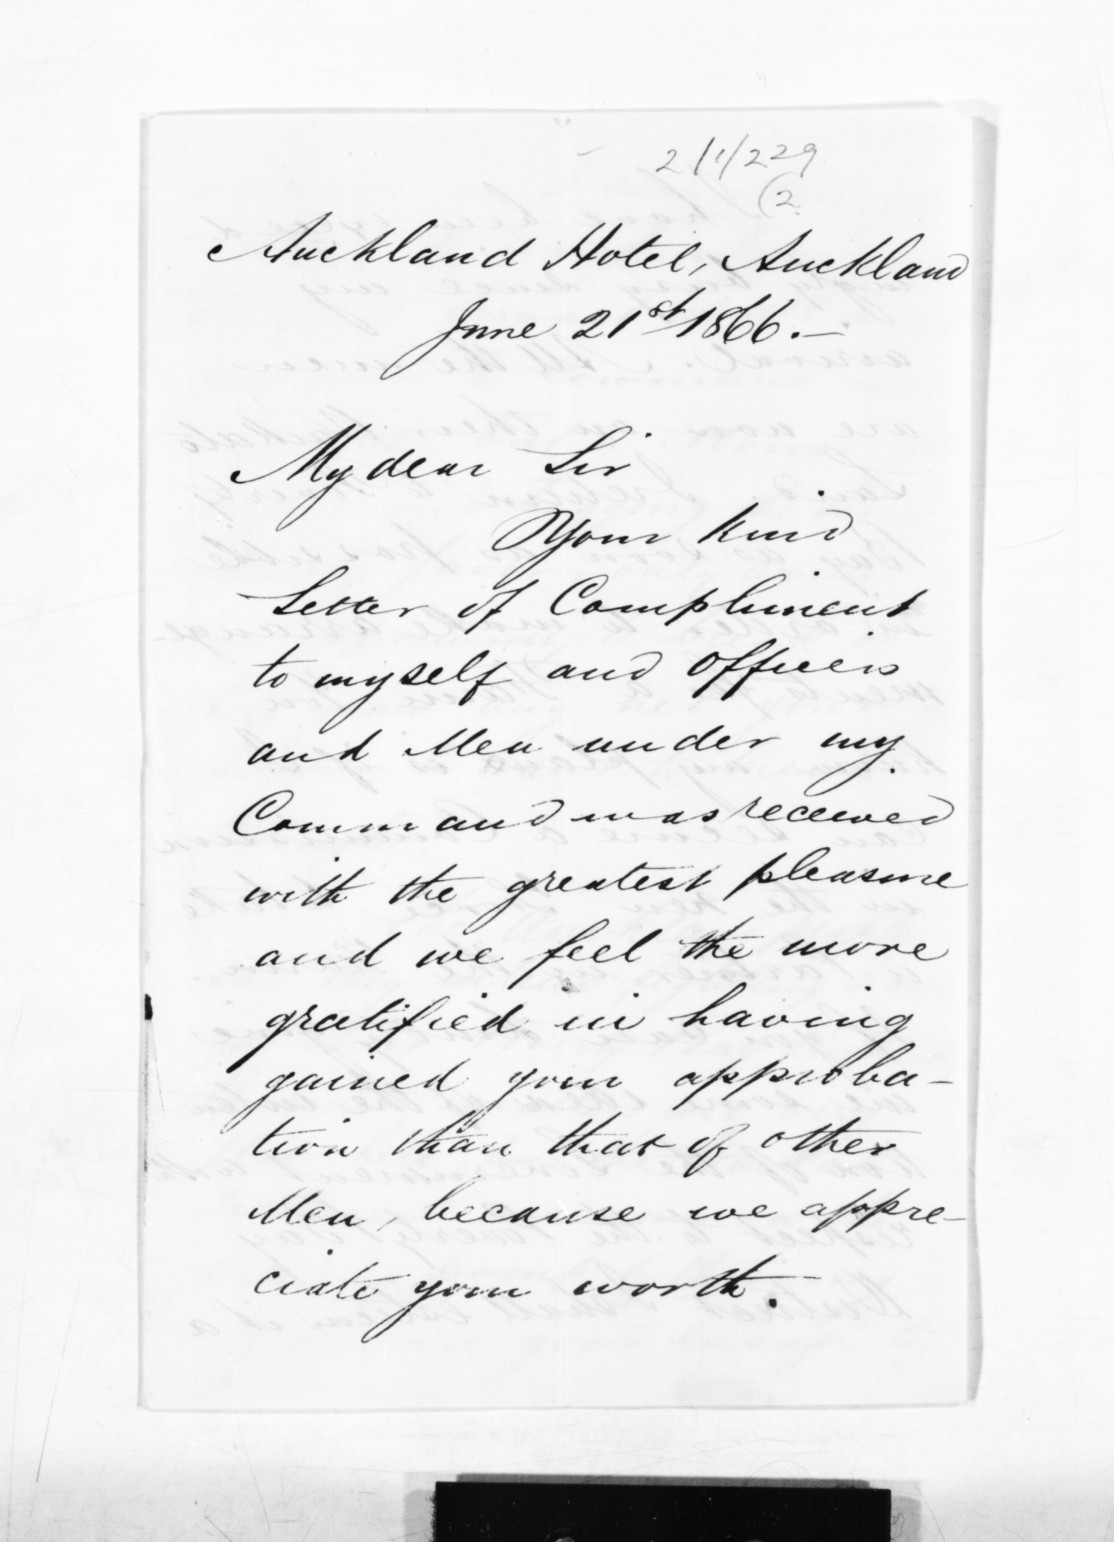 2/1/229
(2
Auckland Hotel, Auckland
June 21st 1866.—
My dear Sir
Your kind
Letter of Compliment
to myself and officers
and Men under my
Command was received
with the greatest pleasure
and we feel the more
gratified in having
gained your approba-
tion than that of other
Men, because we appre-
ciate your worth.